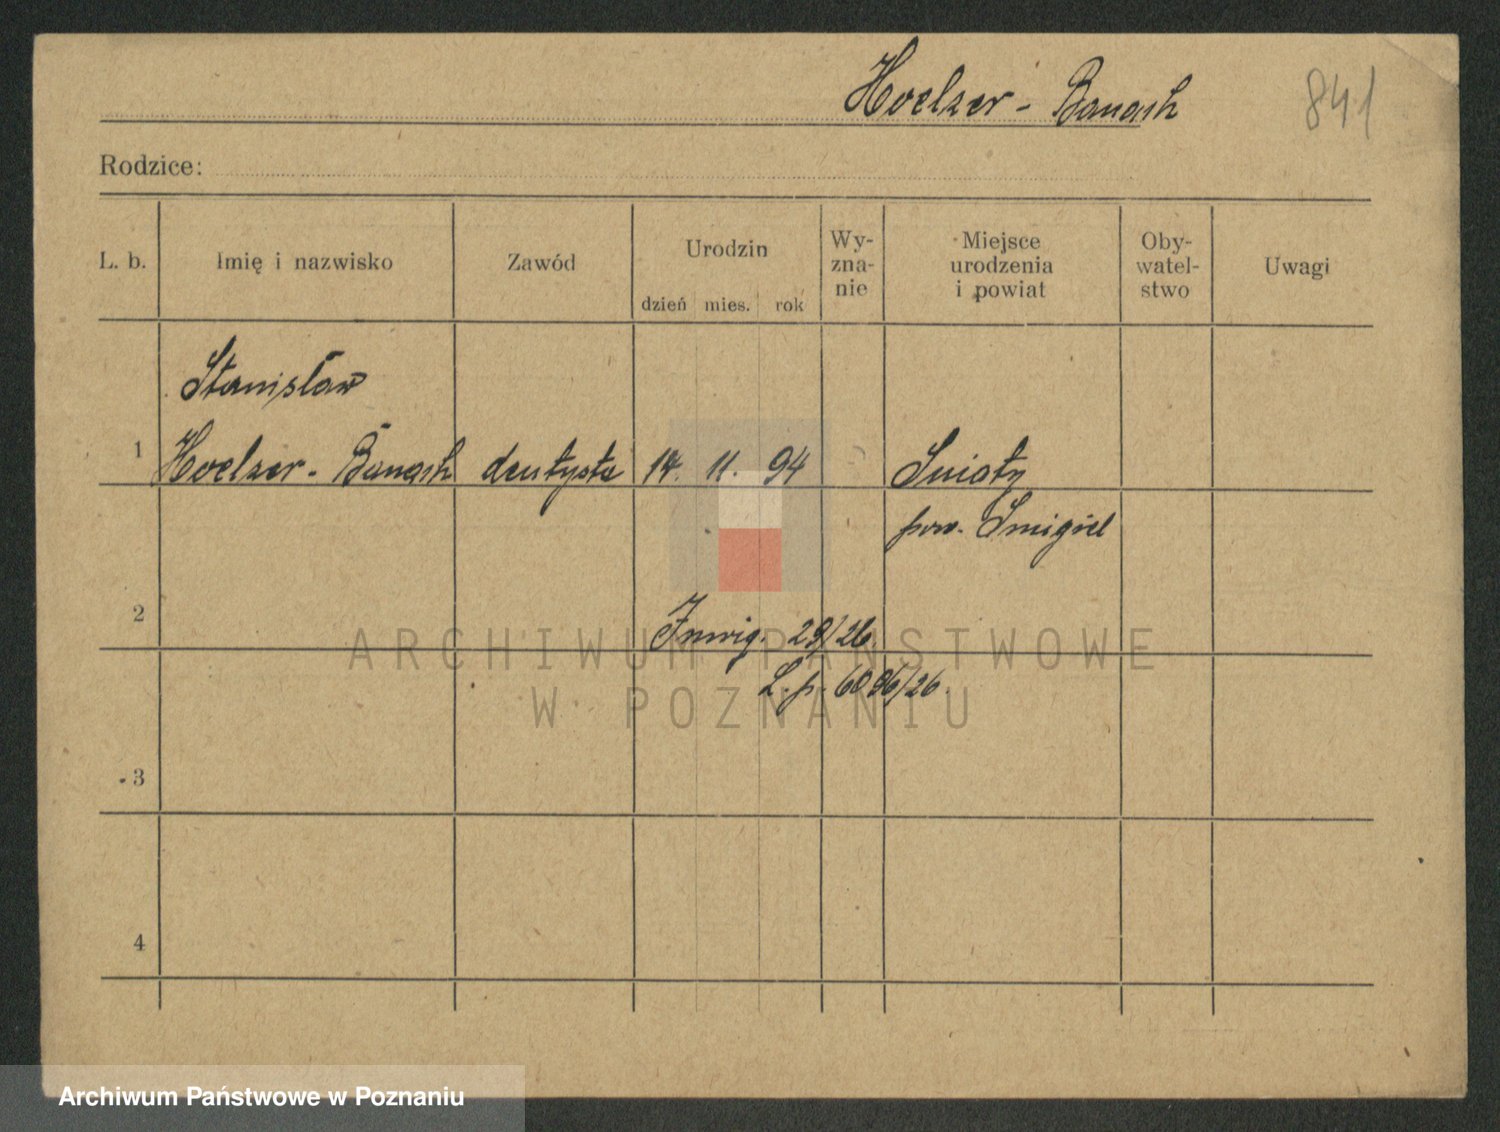 Hoelzer - Banash
841
Rodzice:
L. b.
Imię i nazwisko
Zawód
Urodzin
dzień mies. rok
Wy-
zna-
nie
Miejsce
urodzenia
i powiat
Oby-
watel-
stwo
Uwagi
Stanisław
1 Hoelzer - Banash dentysta 14. 11. 94 Śniaty
pow. Śmigiel
2
29/26
L. p. 6096/26.
3
4
ARCHIWUM PAŃSTWOWE
W POZNANIU
Archiwum Państwowe w Poznaniu